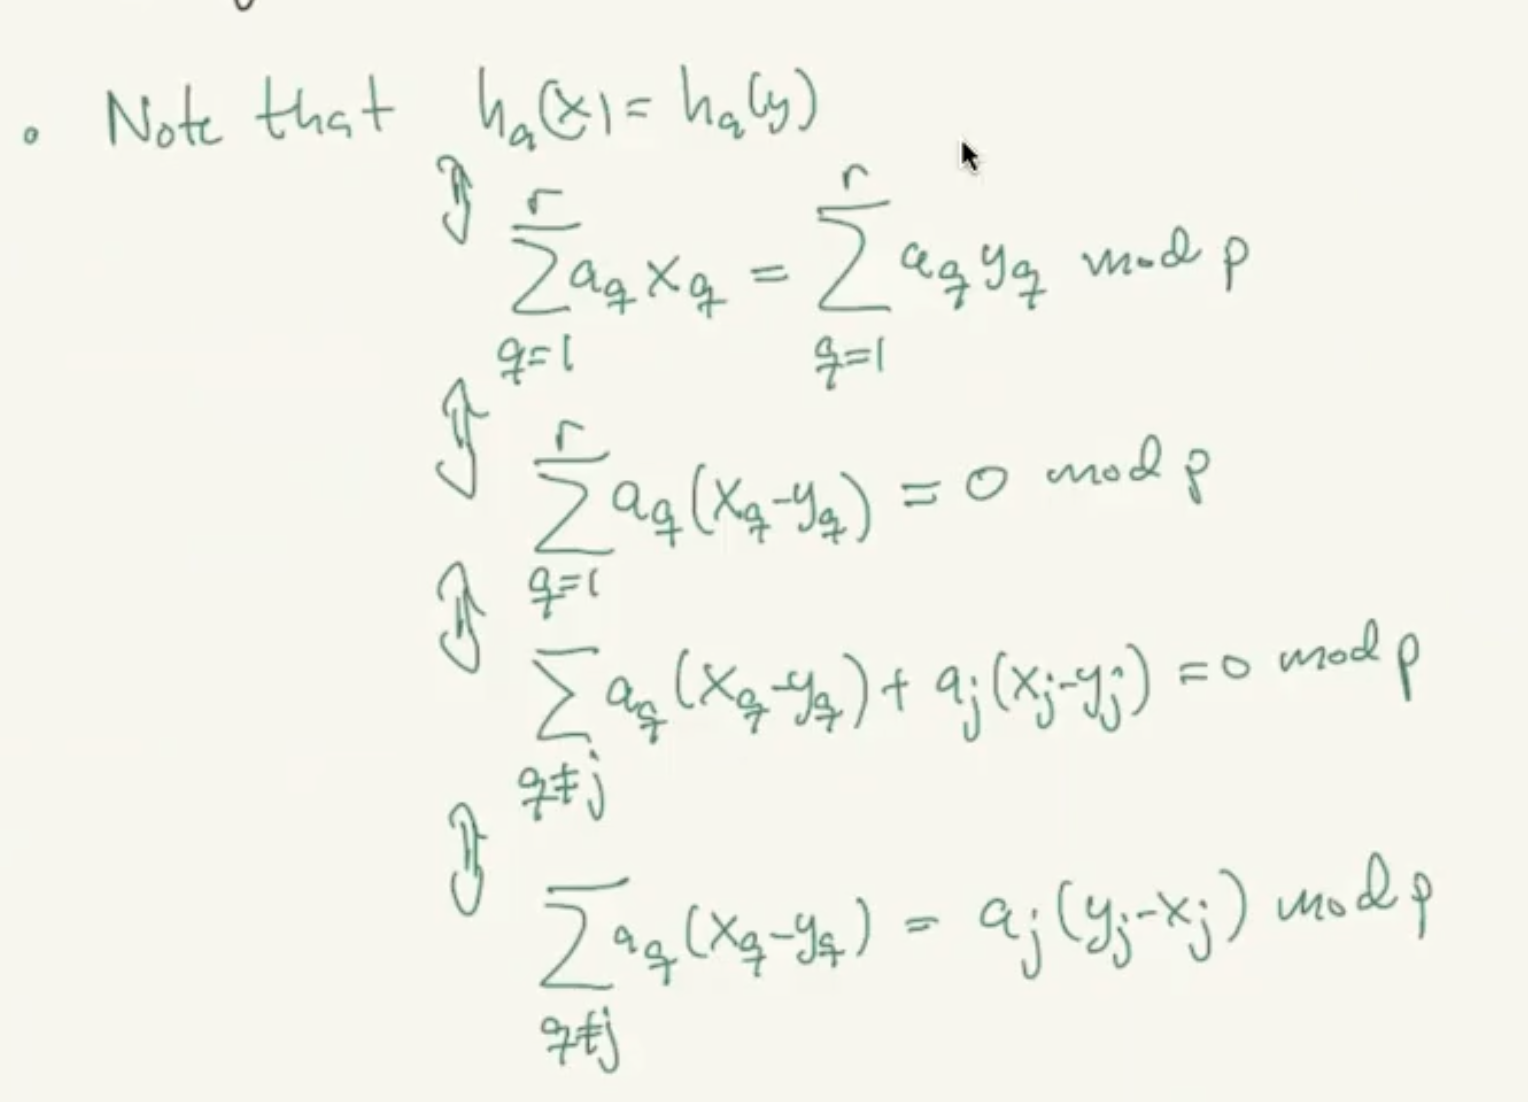 • Note that h_a(x) = h_a(y)
⇕ \sum_{q=1}^{r} a_q x_q = \sum_{q=1}^{r} a_q y_q mod p
⇕ \sum_{q=1}^{r} a_q (x_q - y_q) = 0 mod p
⇕ \sum_{q≠j} a_q (x_q - y_q) + a_j (x_j - y_j) = 0 mod p
⇕ \sum_{q≠j} a_q (x_q - y_q) = a_j (y_j - x_j) mod p